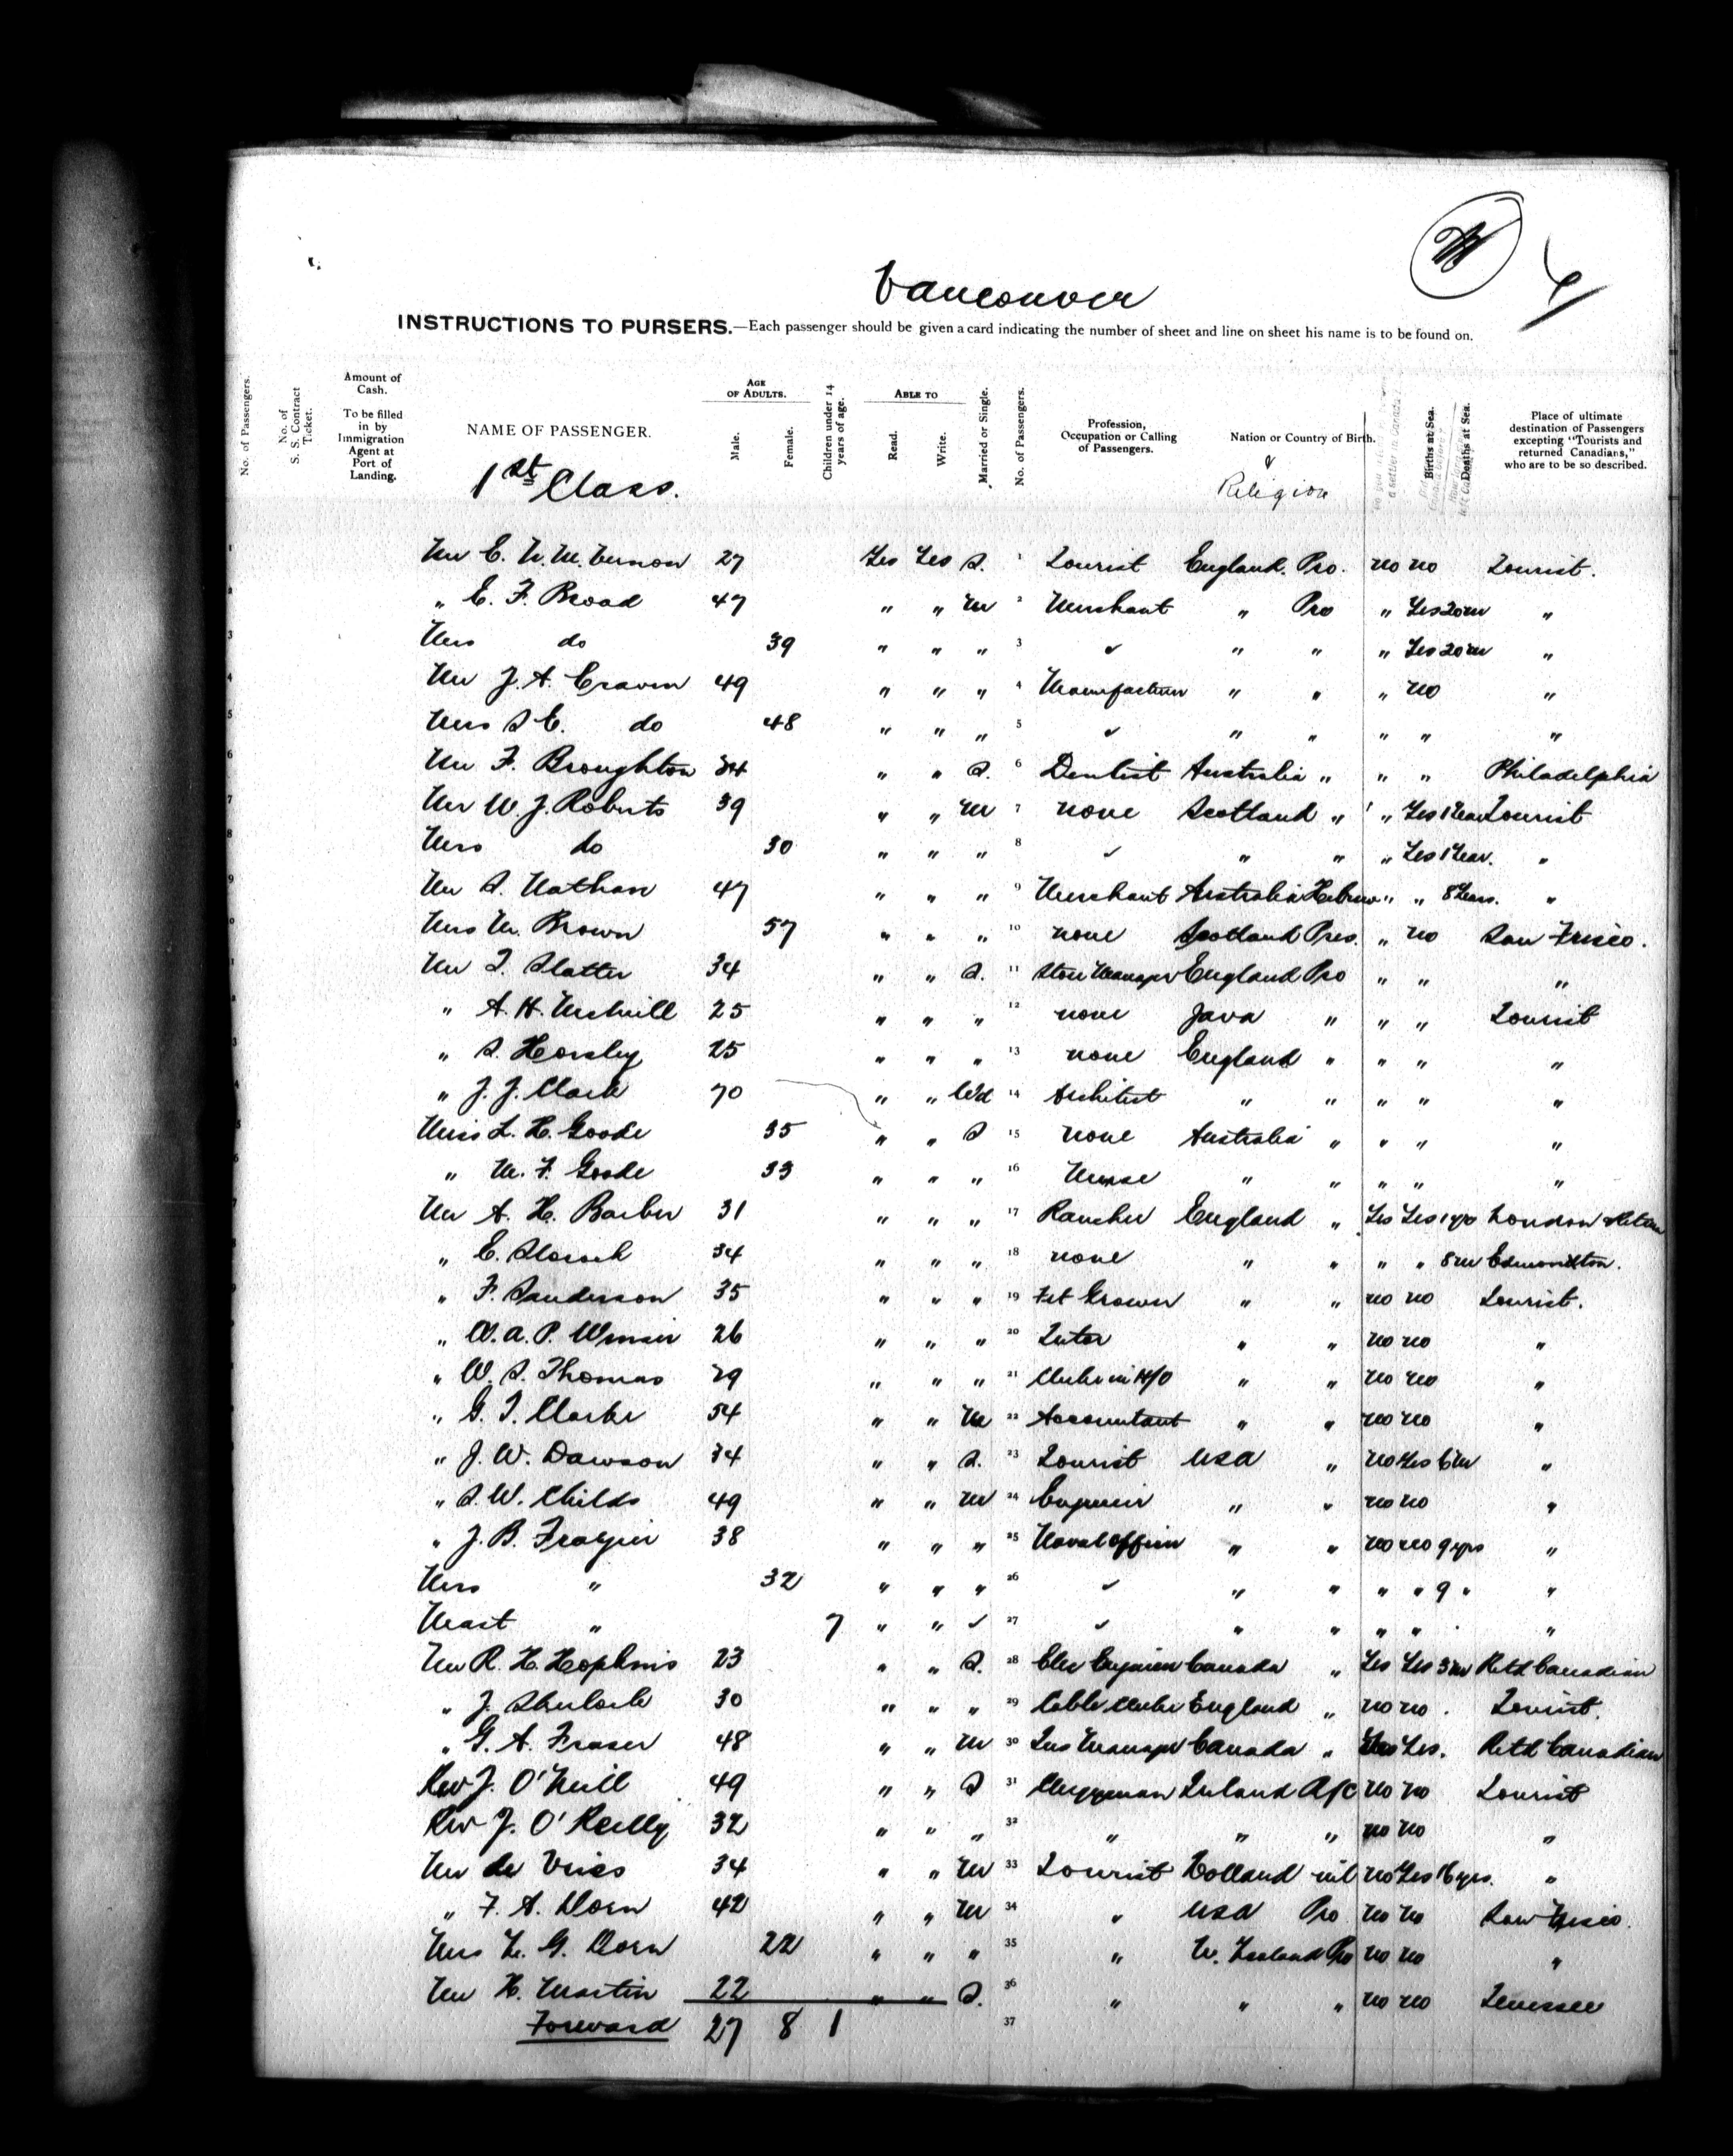 Vancouver
INSTRUCTIONS TO PURSERS.—Each passenger should be given a card indicating the number of sheet and line on sheet his name is to be found on.
No. of Passengers. No. of S. S. Contract Ticket. Amount of Cash. To be filled in by Immigration Agent at Port of Landing. NAME OF PASSENGER. AGE OF ADULTS. Male. Female. Children under 14 years of age. ABLE TO Read. Write. Married or Single. No. of Passengers. Profession, Occupation or Calling of Passengers. Nation or Country of Birth. & Religion Births at Sea. Deaths at Sea. Place of ultimate destination of Passengers excepting "Tourists and returned Canadians," who are to be so described.
1st Class.
1 Mr E. V. M. Vernon 27 Yes Yes S. 1 Tourist England. Pro. no no Tourist.
2 " E. F. Broad 47 " " M 2 Merchant " Pro " Yes 20 m "
3 Mrs do 39 " " " 3 ✓ " " " Yes 20 m "
4 Mr J. A. Craven 49 " " " 4 Manufacturer " " " no "
5 Mrs S E. do 48 " " " 5 ✓ " " " " "
6 Mr F. Broughton 34 " " S. 6 Dentist Australia " " " Philadelphia
7 Mr W. J. Roberts 39 " " M 7 none Scotland " " Yes 1 Year Tourist
8 Mrs do 30 " " " 8 ✓ " " " Yes 1 Year. "
9 Mr S. Nathan 47 " " " 9 Merchant Australia Hebrew " " 8 Years. "
Mrs M. Brown 57 " " " 10 none Scotland Pres. " no San Frisco.
Mr T. Slatter 34 " " S. 11 Store Manager England Pro " " "
" A. H. 25 " " " 12 none Java " " " Tourist
" S. Horsley 25 " " " 13 none England " " " "
" J. J. Clark 70 " " Wd 14 Architect " " " " "
Miss L. H. Goode 35 " " S 15 none Australia " " " "
" M. F. Goode 33 " " " 16 Nurse " " " " "
Mr A. H. Barber 31 " " " 17 Rancher England " Yes Yes 1 yr London
" E. 34 " " " 18 none " " " " 8 m Edmonton.
" F. Sanderson 35 " " " 19 Frt Grower " " no no Tourist.
" W. A. P. 26 " " " 20 Tutor " " no no "
" W. S. Thomas 29 " " " 21 Clerk in H/O " " no no "
" G. T. Clarke 54 " " M 22 Accountant " " no no "
" J. W. Dawson 34 " " S. 23 Tourist USA " no Yes 6 m "
" S. W. Childs 49 " " M 24 Engineer " " no no "
" J. B. Frazier 38 " " " 25 Naval Officer " " no no 9 yrs "
Mrs " 32 " " " 26 ✓ " " " " 9 " "
Mast " 7 " " ✓ 27 ✓ " " " " "
Mr R. H. Hopkins 23 " " S. 28 Elec Engineer Canada " Yes Yes 3 m Retd Canadian
" J. 30 " " " 29 Cable Clerk England " no no. Tourist.
" G. A. Fraser 48 " " M 30 Ins Manager Canada " Yes Yes. Retd Canadian
Rev J. O'Neill 49 " " S 31 Clergyman Ireland R/C no no Tourist
Rev J. O'Reilly 32 " " " 32 " " " no no "
Mr de Vries 34 " " M 33 Tourist Holland nil no Yes 16 yrs. "
" F. A. Dorn 42 " " M 34 " USA Pro no no San Frisco.
Mrs L. G. Dorn 22 " " " 35 " N. Zealand Pro no no "
Mr H. Martin 22 " " S. 36 " " " no no Tenessee
Forward 27 8 1 37